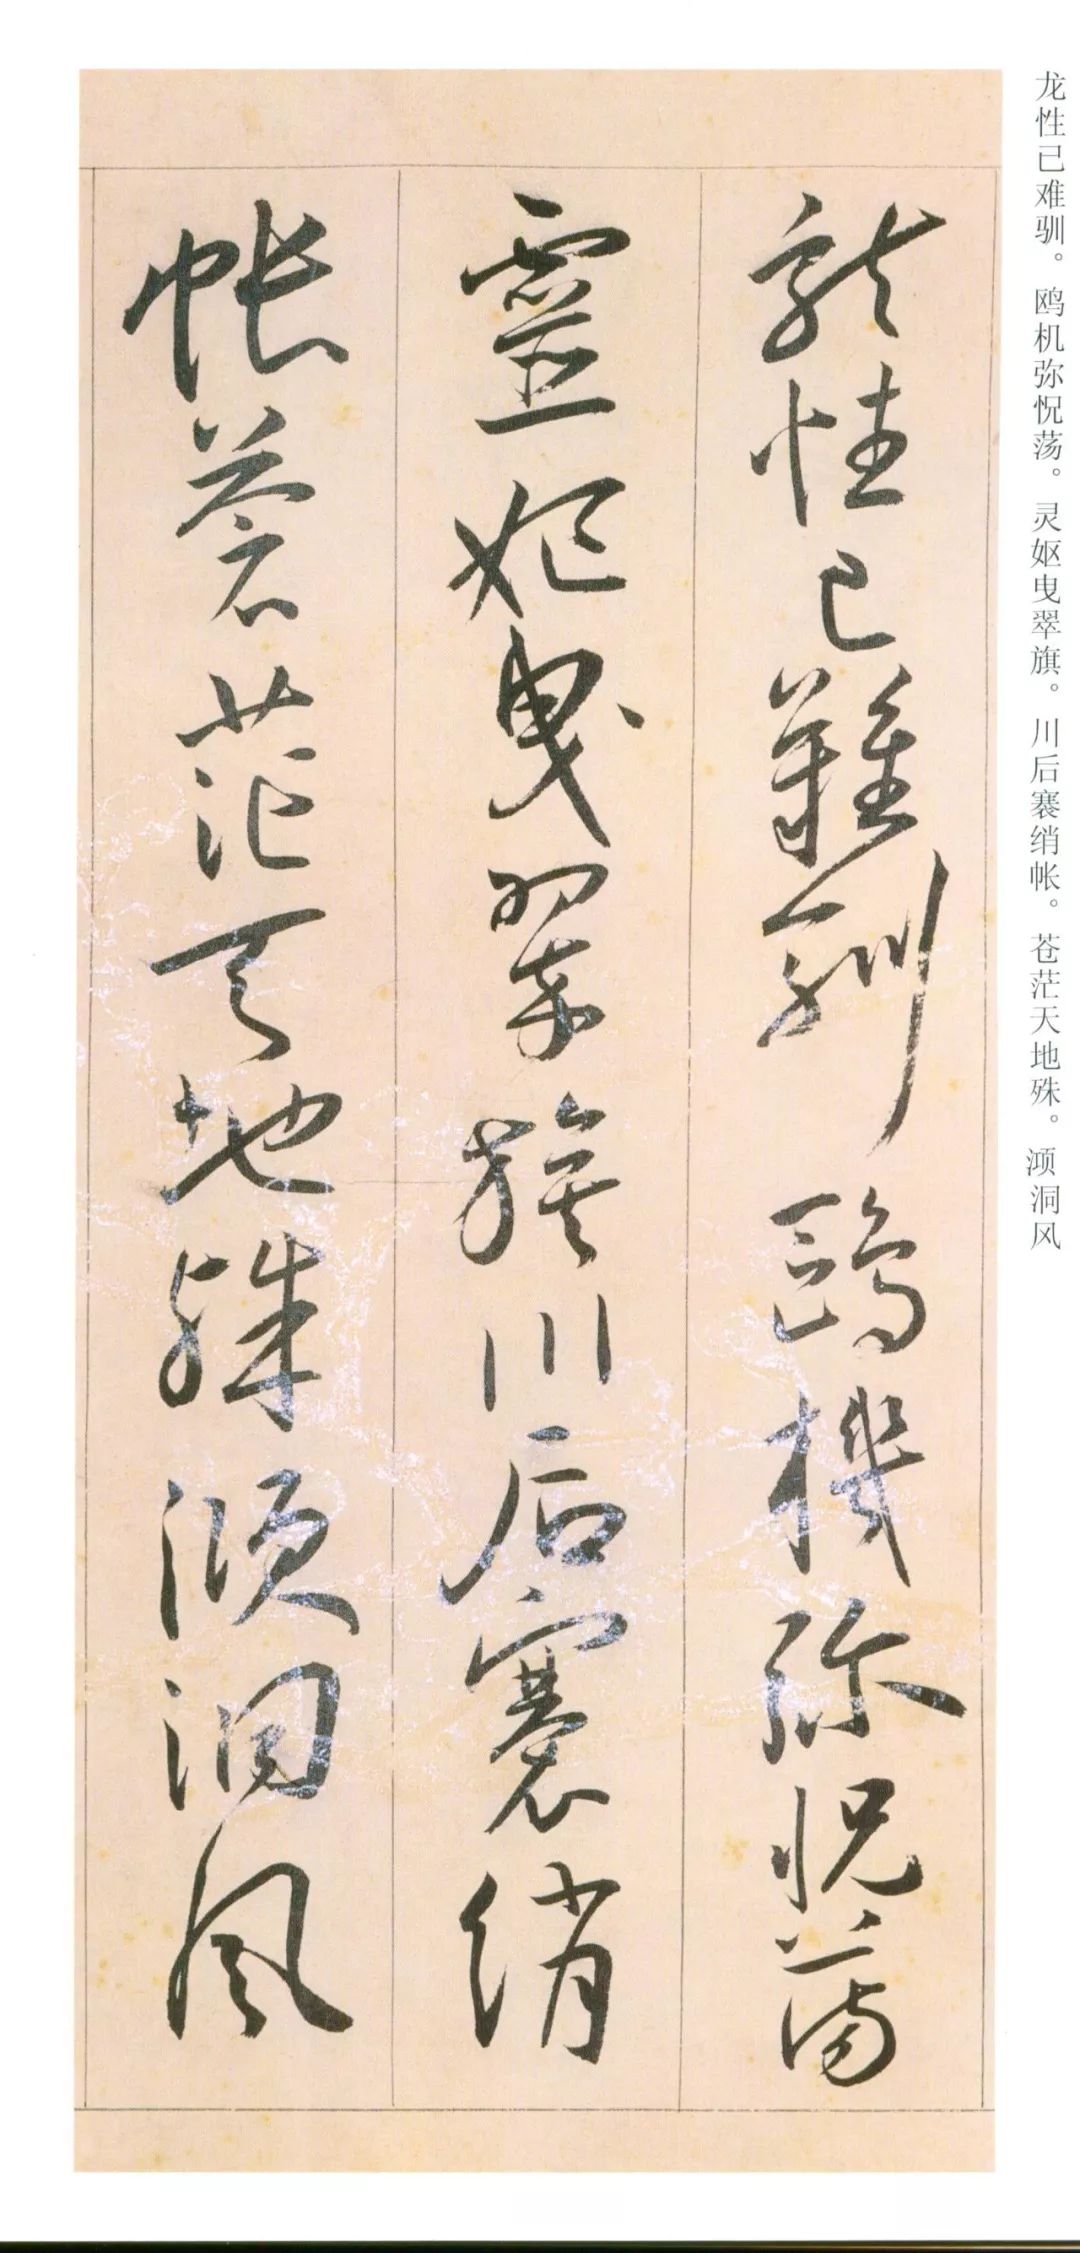 龙性已难驯。鸥机弥怳荡。灵妪曳翠旗。川后褰绡帐。苍茫天地殊。澒洞风
龍性已難馴鷗機弥怳蕩
靈妪曳翠旗川后褰綃
帳蒼茫天地殊澒洞風